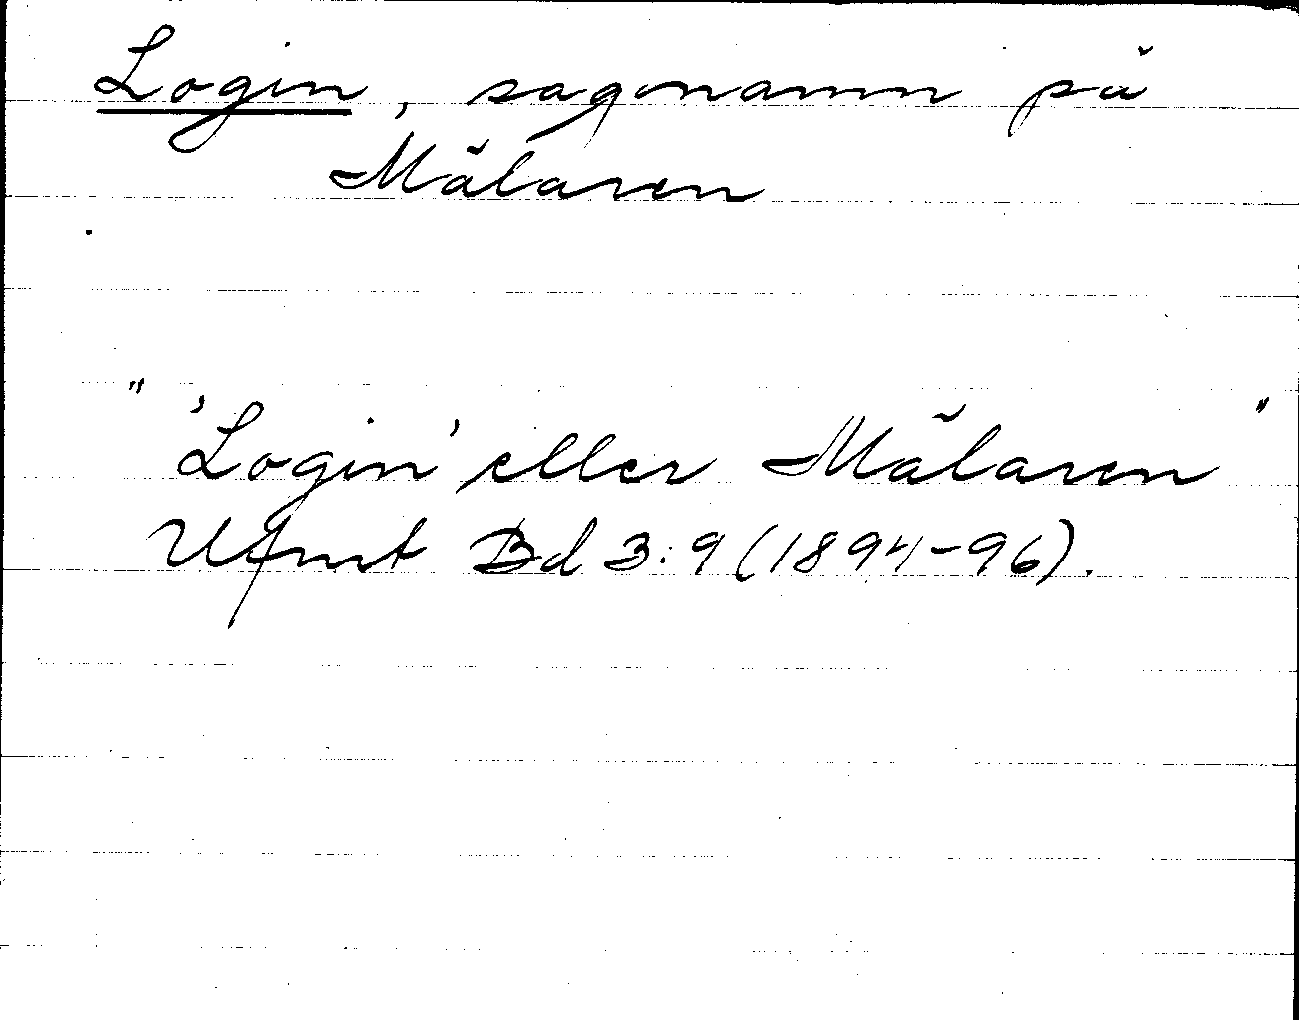 Login, sagonamn på
Mälaren
" 'Login' eller Mälaren "
Ufmt Bd 3:9 (1894-96).